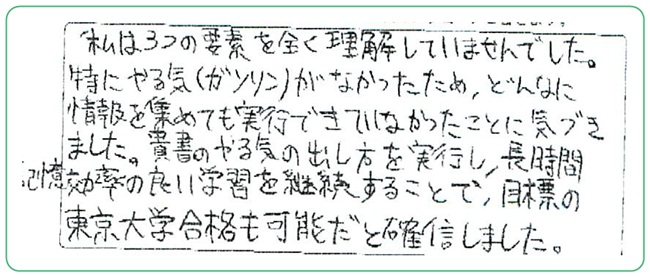 私は3つの要素を全く理解していませんでした。
特にやる気(ガソリン)がなかったため、どんなに
情報を集めても実行できていなかったことに気づき
ました。貴書のやる気の出し方を実行し、長時間
記憶効率の良い学習を継続することで、目標の
東京大学合格も可能だと確信しました。